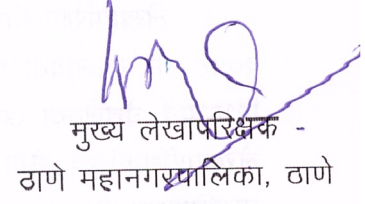 मुख्य लेखापरिक्षक -
ठाणे महानगरपालिका, ठाणे